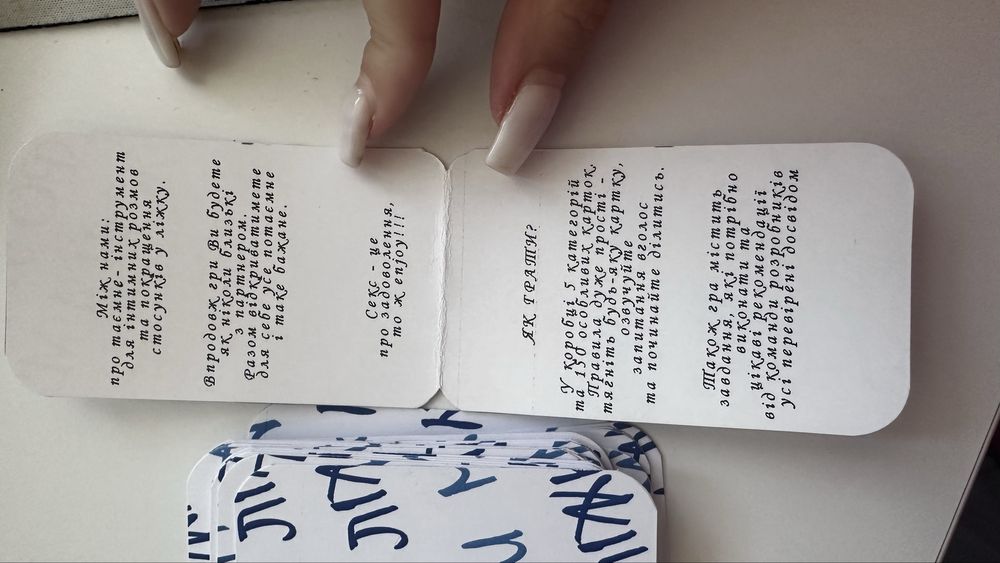 Між нами:
про таємне- інструмент
для інтимних розмов
та покращення
стосунків у ліжку.
Впродовж гри Ви будете
як ніколи близькі
з партнером.
Разом відкриватимете
для себе усе потаємне
і таке бажане.
Секс - це
про задоволення,
то ж enjoy!!!
ЯК ГРАТИ?
У коробці 5 категорій
та 150 особливих карток.
Правила дуже прості -
тягніть будь-яку картку,
озвучуйте
запитання вголос
та починайте ділитись.
Також гра містить
завдання, які потрібно
виконати та
цікаві рекомендації
від команди розробників
усі перевірені досвідом